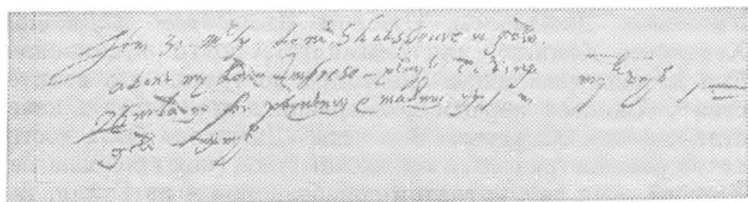 Itm 31 mrtij to mr Shakspeare in gold
about my Lorde Impreso xliiijs To Rich
Burbage for paynting & making yt in
gold xliiijs